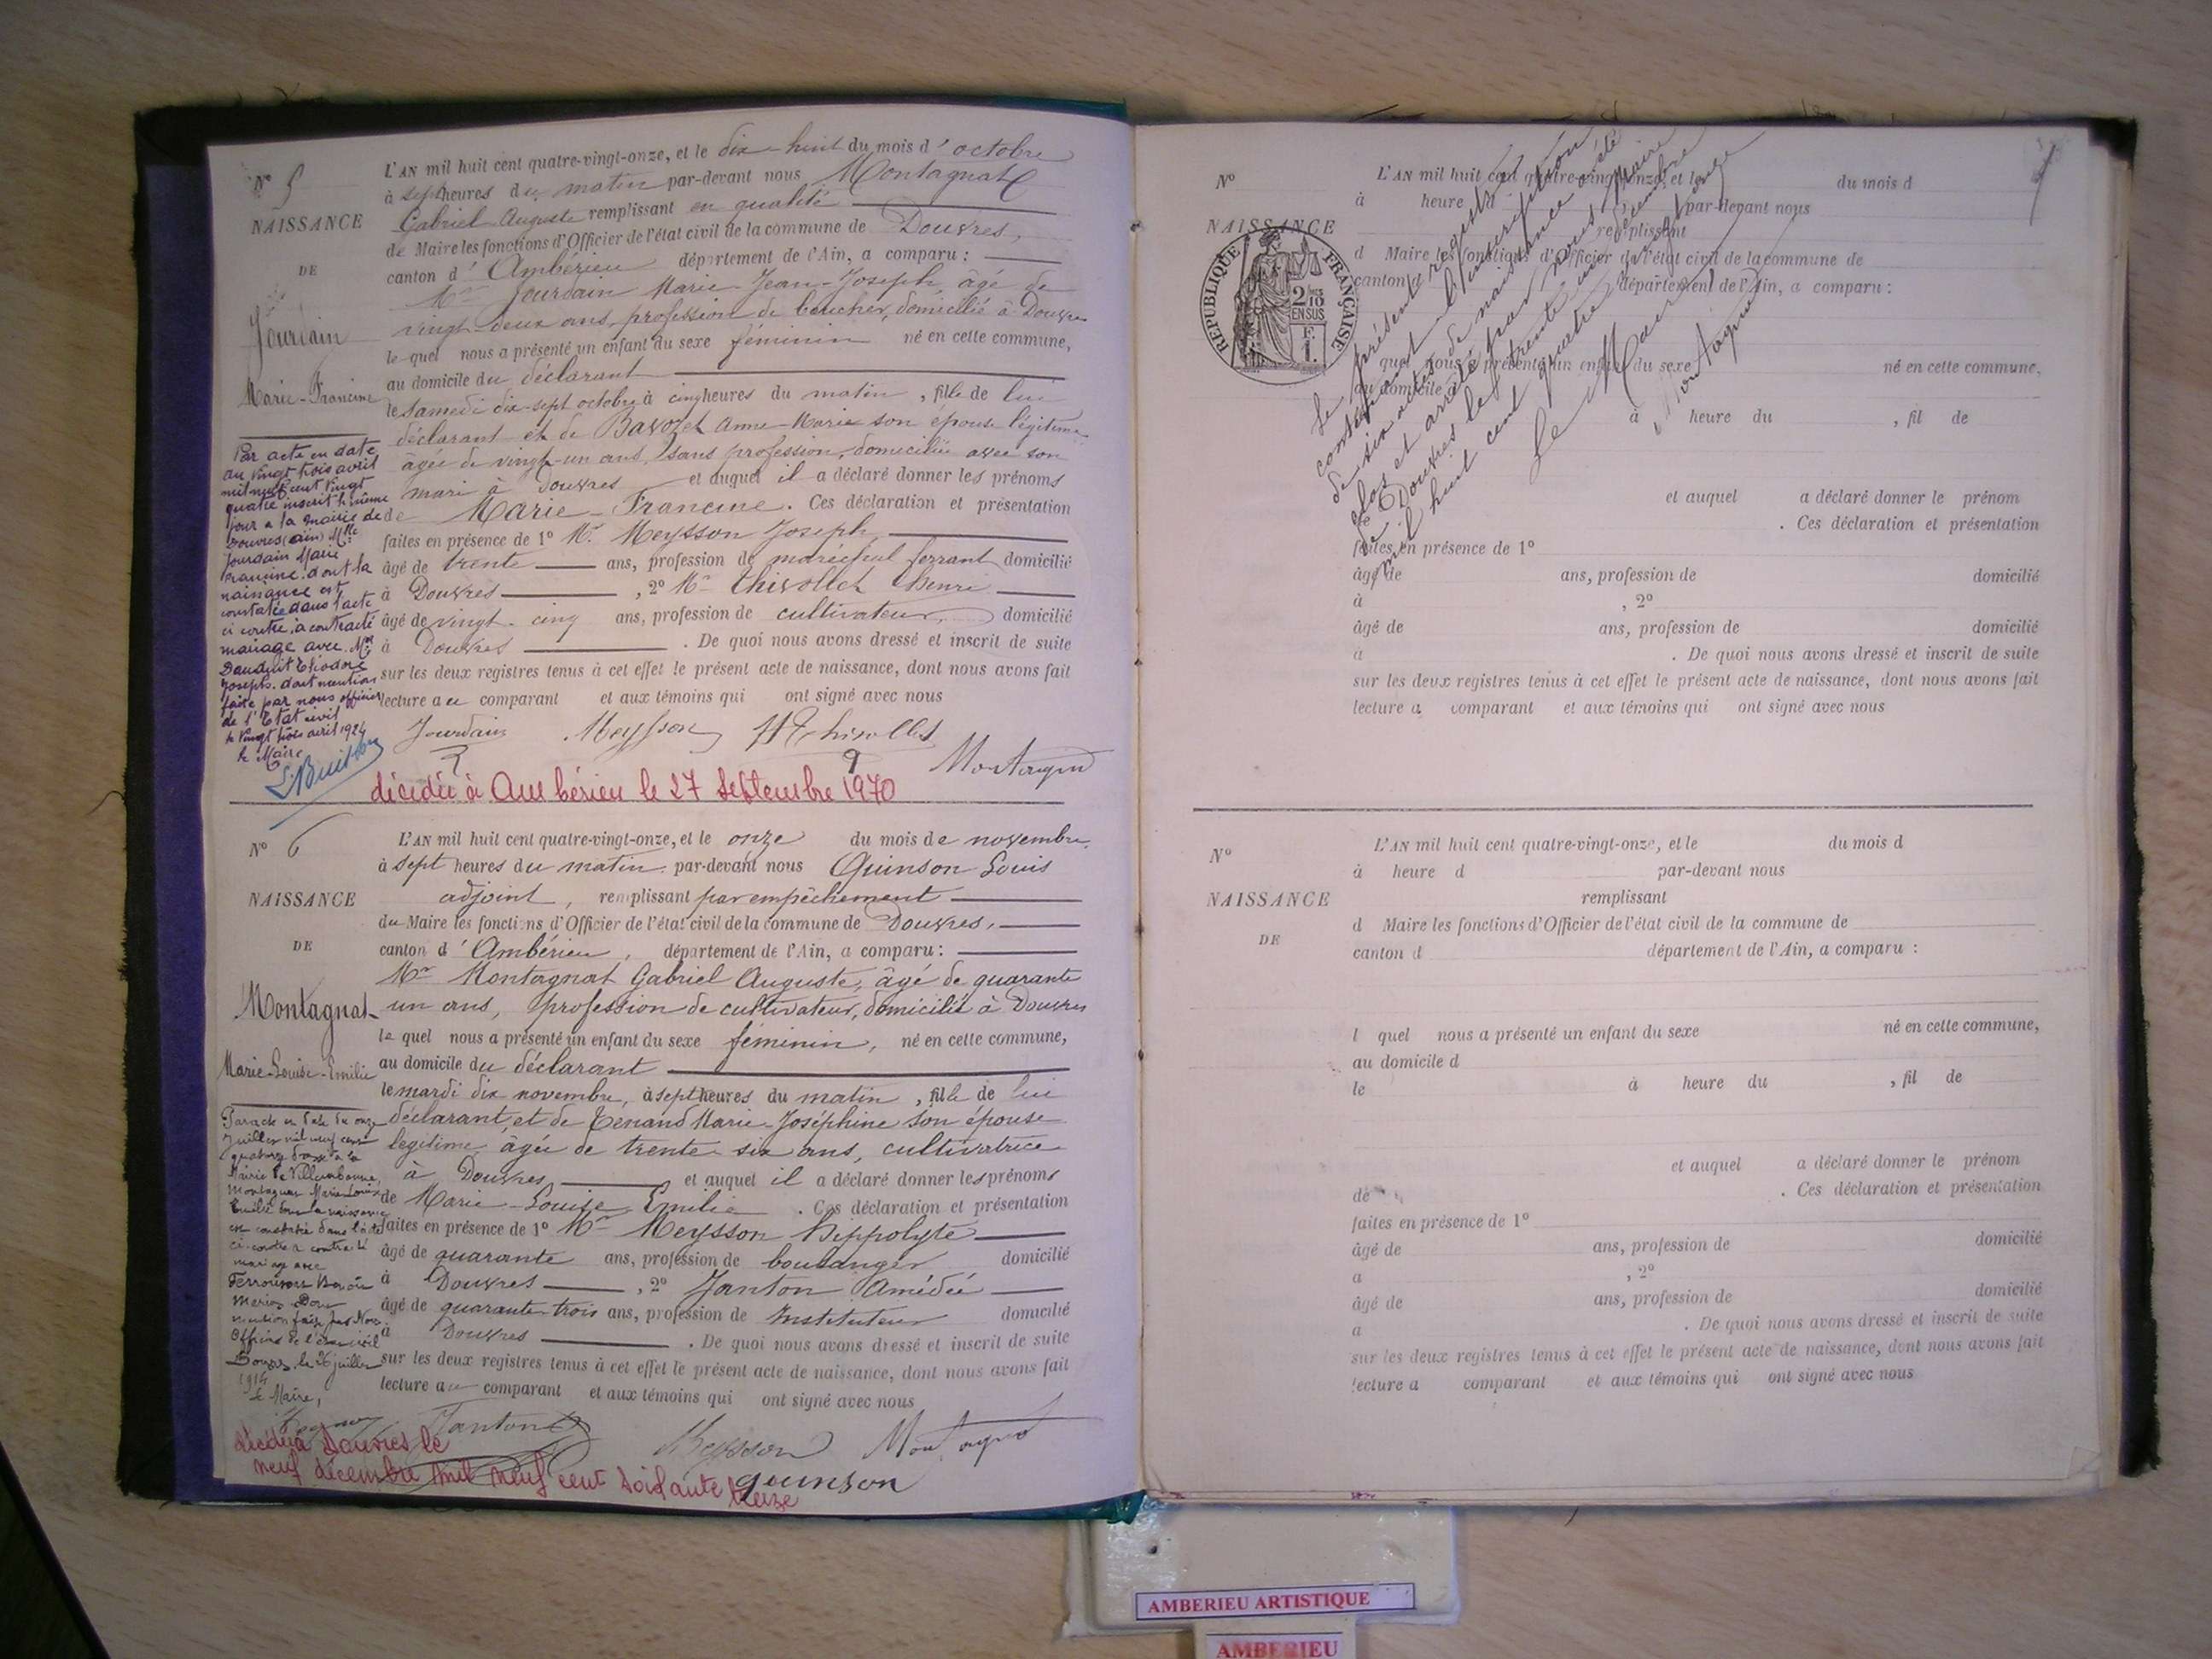 N° 5
NAISSANCE
DE
Jourdain
Marie-Francine
L'AN mil huit cent quatre-vingt-onze, et le dix-huit du mois d'octobre
à sept heures du matin par-devant nous Montagnat
Gabriel Auguste remplissant en qualité
de Maire les fonctions d'Officier de l'état civil de la commune de Douvres,
canton d'Ambérieu département de l'Ain, a comparu :
Mr Jourdain Marie-Jean-Joseph, âgé de
vingt-deux ans, profession de boucher, domicilié à Douvres
le quel nous a présenté un enfant du sexe féminin né en cette commune,
au domicile du déclarant
le samedi dix-sept octobre à cinq heures du matin, fille de lui
déclarant et de Bavozet Anne-Marie son épouse légitime
âgée de vingt-un ans, sans profession, domiciliée avec son
mari à Douvres et auquel il a déclaré donner les prénoms
de Marie-Francine. Ces déclaration et présentation
faites en présence de 1° Mr. Meysson Joseph
âgé de trente ans, profession de maréchal ferrant domicilié
à Douvres, 2° Mr Chivollet Henri
âgé de vingt-cinq ans, profession de cultivateur, domicilié
à Douvres. De quoi nous avons dressé et inscrit de suite
sur les deux registres tenus à cet effet le présent acte de naissance, dont nous avons fait
lecture au comparant et aux témoins qui ont signé avec nous
Jourdain Meysson H Chivollet Montagnat
Par acte en date
du vingt trois avril
mil neuf cent vingt
quatre inscrit le même
jour a la mairie de
Douvres (ain) Mlle
Jourdain Marie
Francine. dont la
naissance est
constatée dans l'acte
ci contre, a contracté
mariage avec Mr
Dauduit Théodore
Joseph. dont mention
faite par nous officier
de l'Etat civil
le vingt trois avril 1924
le Maire
L. Buisson
décédée à Ambérieu le 27 septembre 1970
N° 6
NAISSANCE
DE
Montagnat
Marie-Louise-Emilie
L'AN mil huit cent quatre-vingt-onze, et le onze du mois de novembre
à sept heures du matin par-devant nous Quinson Louis
adjoint, remplissant par empêchement
du Maire les fonctions d'Officier de l'état civil de la commune de Douvres,
canton d'Ambérieu, département de l'Ain, a comparu :
Mr Montagnat Gabriel Auguste, âgé de quarante
un ans, profession de cultivateur, domicilié à Douvres
le quel nous a présenté un enfant du sexe féminin, né en cette commune,
au domicile du déclarant
le mardi dix novembre, à sept heures du matin, fille de lui
déclarant, et de Tenand Marie-Joséphine son épouse
legitime âgée de trente six ans, cultivatrice
à Douvres et auquel il a déclaré donner les prénoms
de Marie-Louise-Emilie. Ces déclaration et présentation
faites en présence de 1° Mr Meysson Hippolyte
âgé de quarante ans, profession de boulanger domicilié
à Douvres, 2° Janton Amédée
âgé de quarante-trois ans, profession de Instituteur domicilié
à Douvres. De quoi nous avons dressé et inscrit de suite
sur les deux registres tenus à cet effet le présent acte de naissance, dont nous avons fait
lecture au comparant et aux témoins qui ont signé avec nous
Janton Meysson Montagnat
Quinson
Par acte en date du onze
Juillet mil neuf cent
quatorze
Mairie de Villeurbanne,
Montagnat Marie Louise
Emilie dont la naissance
est constatée dans l'acte
ci-contre a contracté
mariage avec
Marius Dont
mention faite par Nous
Officier de l'état civil
Douvres, le 26 juillet
1914
Le Maire,
décédée à Douvres le
neuf décembre mil neuf cent soixante treize
N°
NAISSANCE
RÉPUBLIQUE FRANÇAISE
2/10 EN SUS
F. 1.
L'AN mil huit cent quatre-vingt-onze, et le du mois d
à heure d par-devant nous
remplissant
d Maire les fonctions d'Officier de l'état civil de la commune de
canton d département de l'Ain, a comparu :
l quel nous a présenté un enfant du sexe né en cette commune,
au domicile d
à heure du , fil de
et auquel a déclaré donner le prénom
de . Ces déclaration et présentation
faites en présence de 1°
âgé de ans, profession de domicilié
à , 2°
âgé de ans, profession de domicilié
à . De quoi nous avons dressé et inscrit de suite
sur les deux registres tenus à cet effet le présent acte de naissance, dont nous avons fait
lecture a comparant et aux témoins qui ont signé avec nous
Le présent registre
contenant l'inscription
de six actes de naissance a été
clos et arrêté par nous Maire
de Douvres le trente un décembre
mil huit cent quatre vingt onze
Le Maire
Montagnat
N°
NAISSANCE
DE
L'AN mil huit cent quatre-vingt-onze, et le du mois d
à heure d par-devant nous
remplissant
d Maire les fonctions d'Officier de l'état civil de la commune de
canton d département de l'Ain, a comparu :
l quel nous a présenté un enfant du sexe né en cette commune,
au domicile d
le à heure du , fil de
et auquel a déclaré donner le prénom
de . Ces déclaration et présentation
faites en présence de 1°
âgé de ans, profession de domicilié
a , 2°
âgé de ans, profession de domicilié
a . De quoi nous avons dressé et inscrit de suite
sur les deux registres tenus à cet effet le présent acte de naissance, dont nous avons fait
lecture a comparant et aux témoins qui ont signé avec nous
AMBERIEU ARTISTIQUE
AMBERIEU